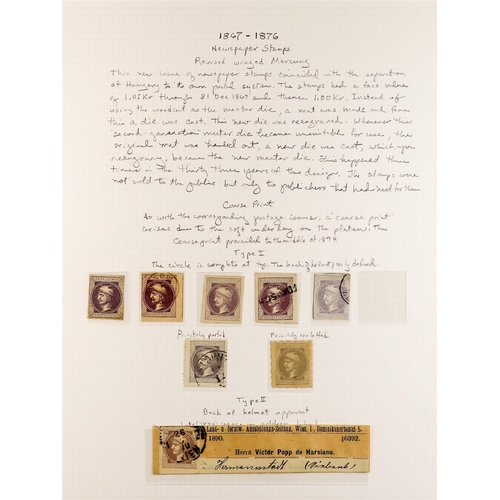 1867-1876
Newspaper Stamps
Revised winged Mercury
This new issue of newspaper stamps coincided with the separation
of Hungary to its own postal system. The stamps had a face value
of 1.05Kr through 31 Dec 1869 and then 1.00Kr. Instead of
using the woodcut as the master die, a mat was made and from
this a die was cast. This new die was reengraved. Whenever this
second-generation master die became unsuitable for use, the
original mat was hauled out, a new die was cast, which upon
reengraving, became the new master die. This happened three
times in the thirty three years of the design. The stamps were
not sold to the public but only to publishers that had need for them
Coarse Print
As with the corresponding postage issues, a 'coarse print'
arises due to the soft underlay on the platen. The
Coarse print prevailed to the middle of 1874
Type I
The circle is complete at top. The back of helmet poorly defined.
Privately perfed
Privately rouletted
Type II
Back of helmet apparent
Land- u. forstw. Ausstellungs-Zeitung, Wien, I., Dominikanerbastei 5.
1890. 16392.
Herrn Victor Popp de Harsianu.
Hermannstadt